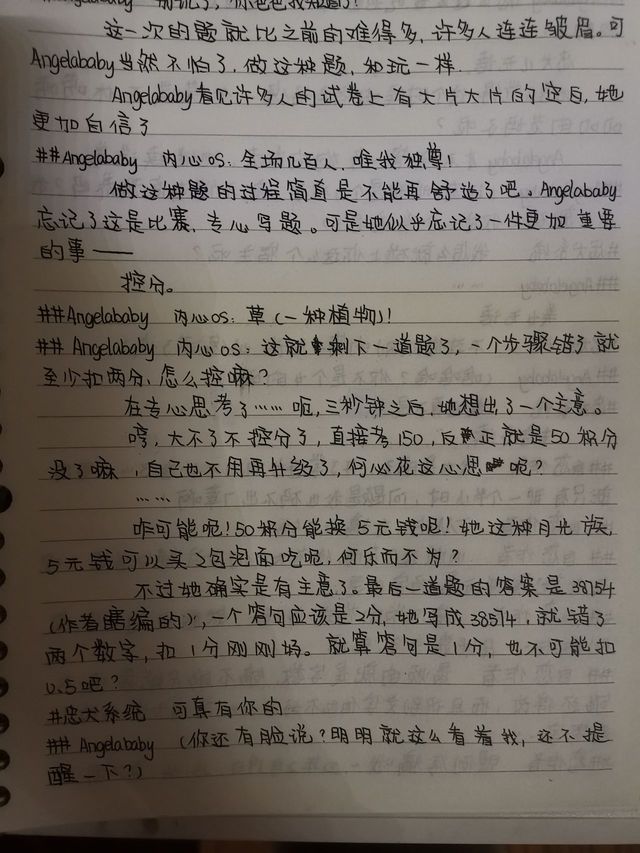 这一次的题就比之前的难得多，许多人连连皱眉。可
Angelababy当然不怕了，做这种题，如玩一样．
Angelababy看见许多人的试卷上有大片大片的空白，她
更加自信了
##Angelababy 内心OS：全场几百人，唯我独尊！
做这种题的过程简直是不能再舒适了吧。Angelababy
忘记了这是比赛，专心写题。可是她似乎忘记了一件更加重要
的事——
控分。
##Angelababy 内心OS：草(一种植物)！
## Angelababy 内心OS：这就剩下一道题了，一个步骤错了就
至少扣两分，怎么控嘛？
在专心思考了……呃，三秒钟之后，她想出了一个主意。
哼，大不了不控分了，直接考150，反正就是50积分
没了嘛，自己也不用再升级了，何必花这心思呢？
……
咋可能呢！50积分能换5元钱呢！她这种月光族，
5元钱可以买2包泡面吃呢，何乐而不为？
不过她确实是有主意了。最后一道题的答案是38154
(作者瞎编的)，一个答句应该是2分，她写成38514，就错了
两个数字，扣1分刚刚好。就算答句是1分，也不可能扣
0.5吧？
#忠犬系统 可真有你的
## Angelababy (你还有脸说？明明就这么看着我，还不提
醒一下？)